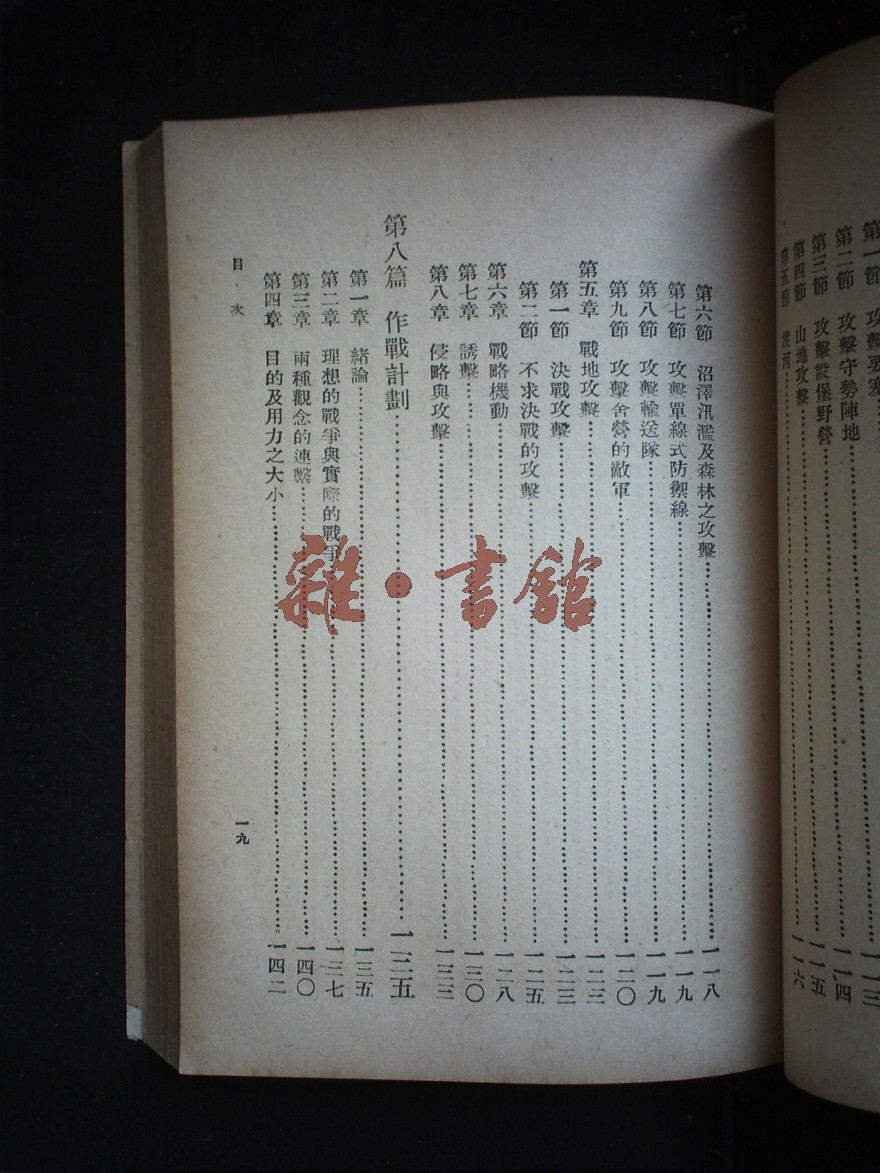 第一節 攻擊要塞……一一三
第二節 攻擊守勢陣地……一一四
第三節 攻擊設堡野營……一一五
第四節 山地攻擊……一一六
第五節 渡河……
第六節 沼澤汎濫及森林之攻擊……一一八
第七節 攻擊單線式防禦線……一一九
第八節 攻擊輸送隊……一一九
第九節 攻擊舍營的敵軍……一二〇
第五章 戰地攻擊……一二三
第一節 決戰攻擊……一二三
第二節 不求決戰的攻擊……一二五
第六章 戰略機動……一二八
第七章 誘擊……一三〇
第八章 侵略與攻擊……一三三
第八篇 作戰計劃……一二五
第一章 緒論……一三五
第二章 理想的戰爭與實際的戰爭……一三七
第三章 兩種觀念的連繫……一四〇
第四章 目的及用力之大小……一四二
目·次
一九
雜·書館